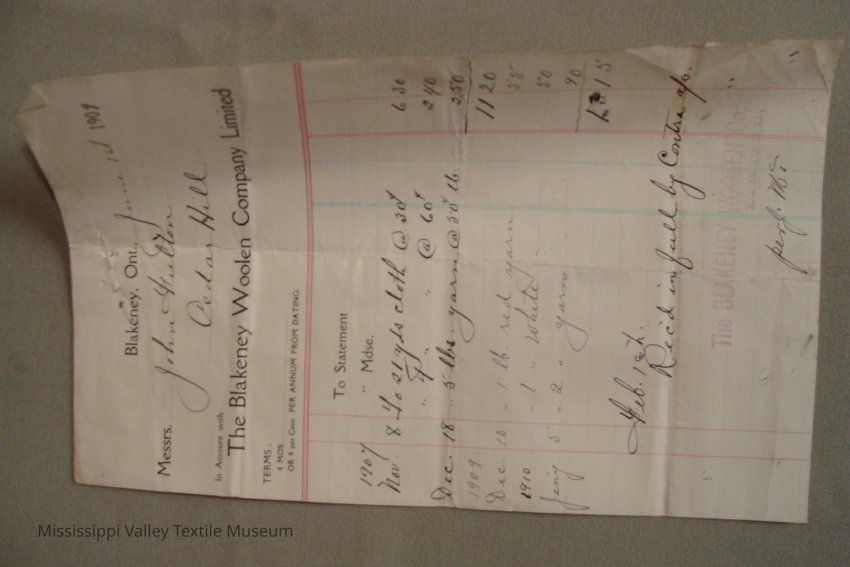 Blakeney, Ont., June 1st 1909
Messrs. John Fulton
Cedar Hill
In Account with
The Blakeney Woolen Company Limited
TERMS:
4 MOS.
OR % per Cent. PER ANNUM FROM DATING
To Statement
1907 " Mdse.
Nov. 8 To 21 yds cloth @ 30¢ 6 30
" " 4 " " @ 60¢ 2 40
Dec. 18 " 5 lbs. yarn @ 50¢ lb. 2 50
11 20
1909
Dec 10 " 1 lb. red yarn 55
1910 " 1 " White " 50
Jany 5 " 2 " yarn 90
13 15
Feb. 1st.
Rec'd in full by Contra a/c.
The BLAKENEY WOOLEN Co.
LIMITED.
per
Mississippi Valley Textile Museum